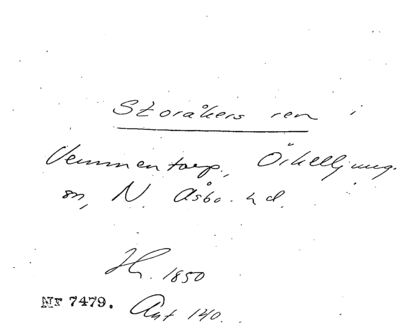 Storåkers ren i
Vemmentorp, Örkelljung.
sn, N. Åsbo. hd.
Hr. 1850
Nr 7479. Ant 140.